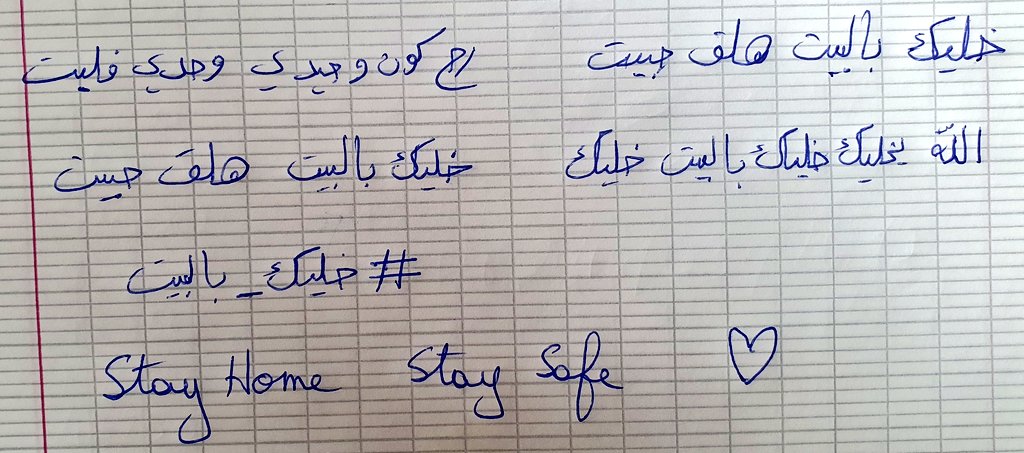 خليك بالبيت هلق جيت رح كون وحيدي وحدي فليت
الله يخليك خليك بالبيت خليك خليك بالبيت هلق جيت
#خليك_بالبيت
Stay Home Stay Safe ♡